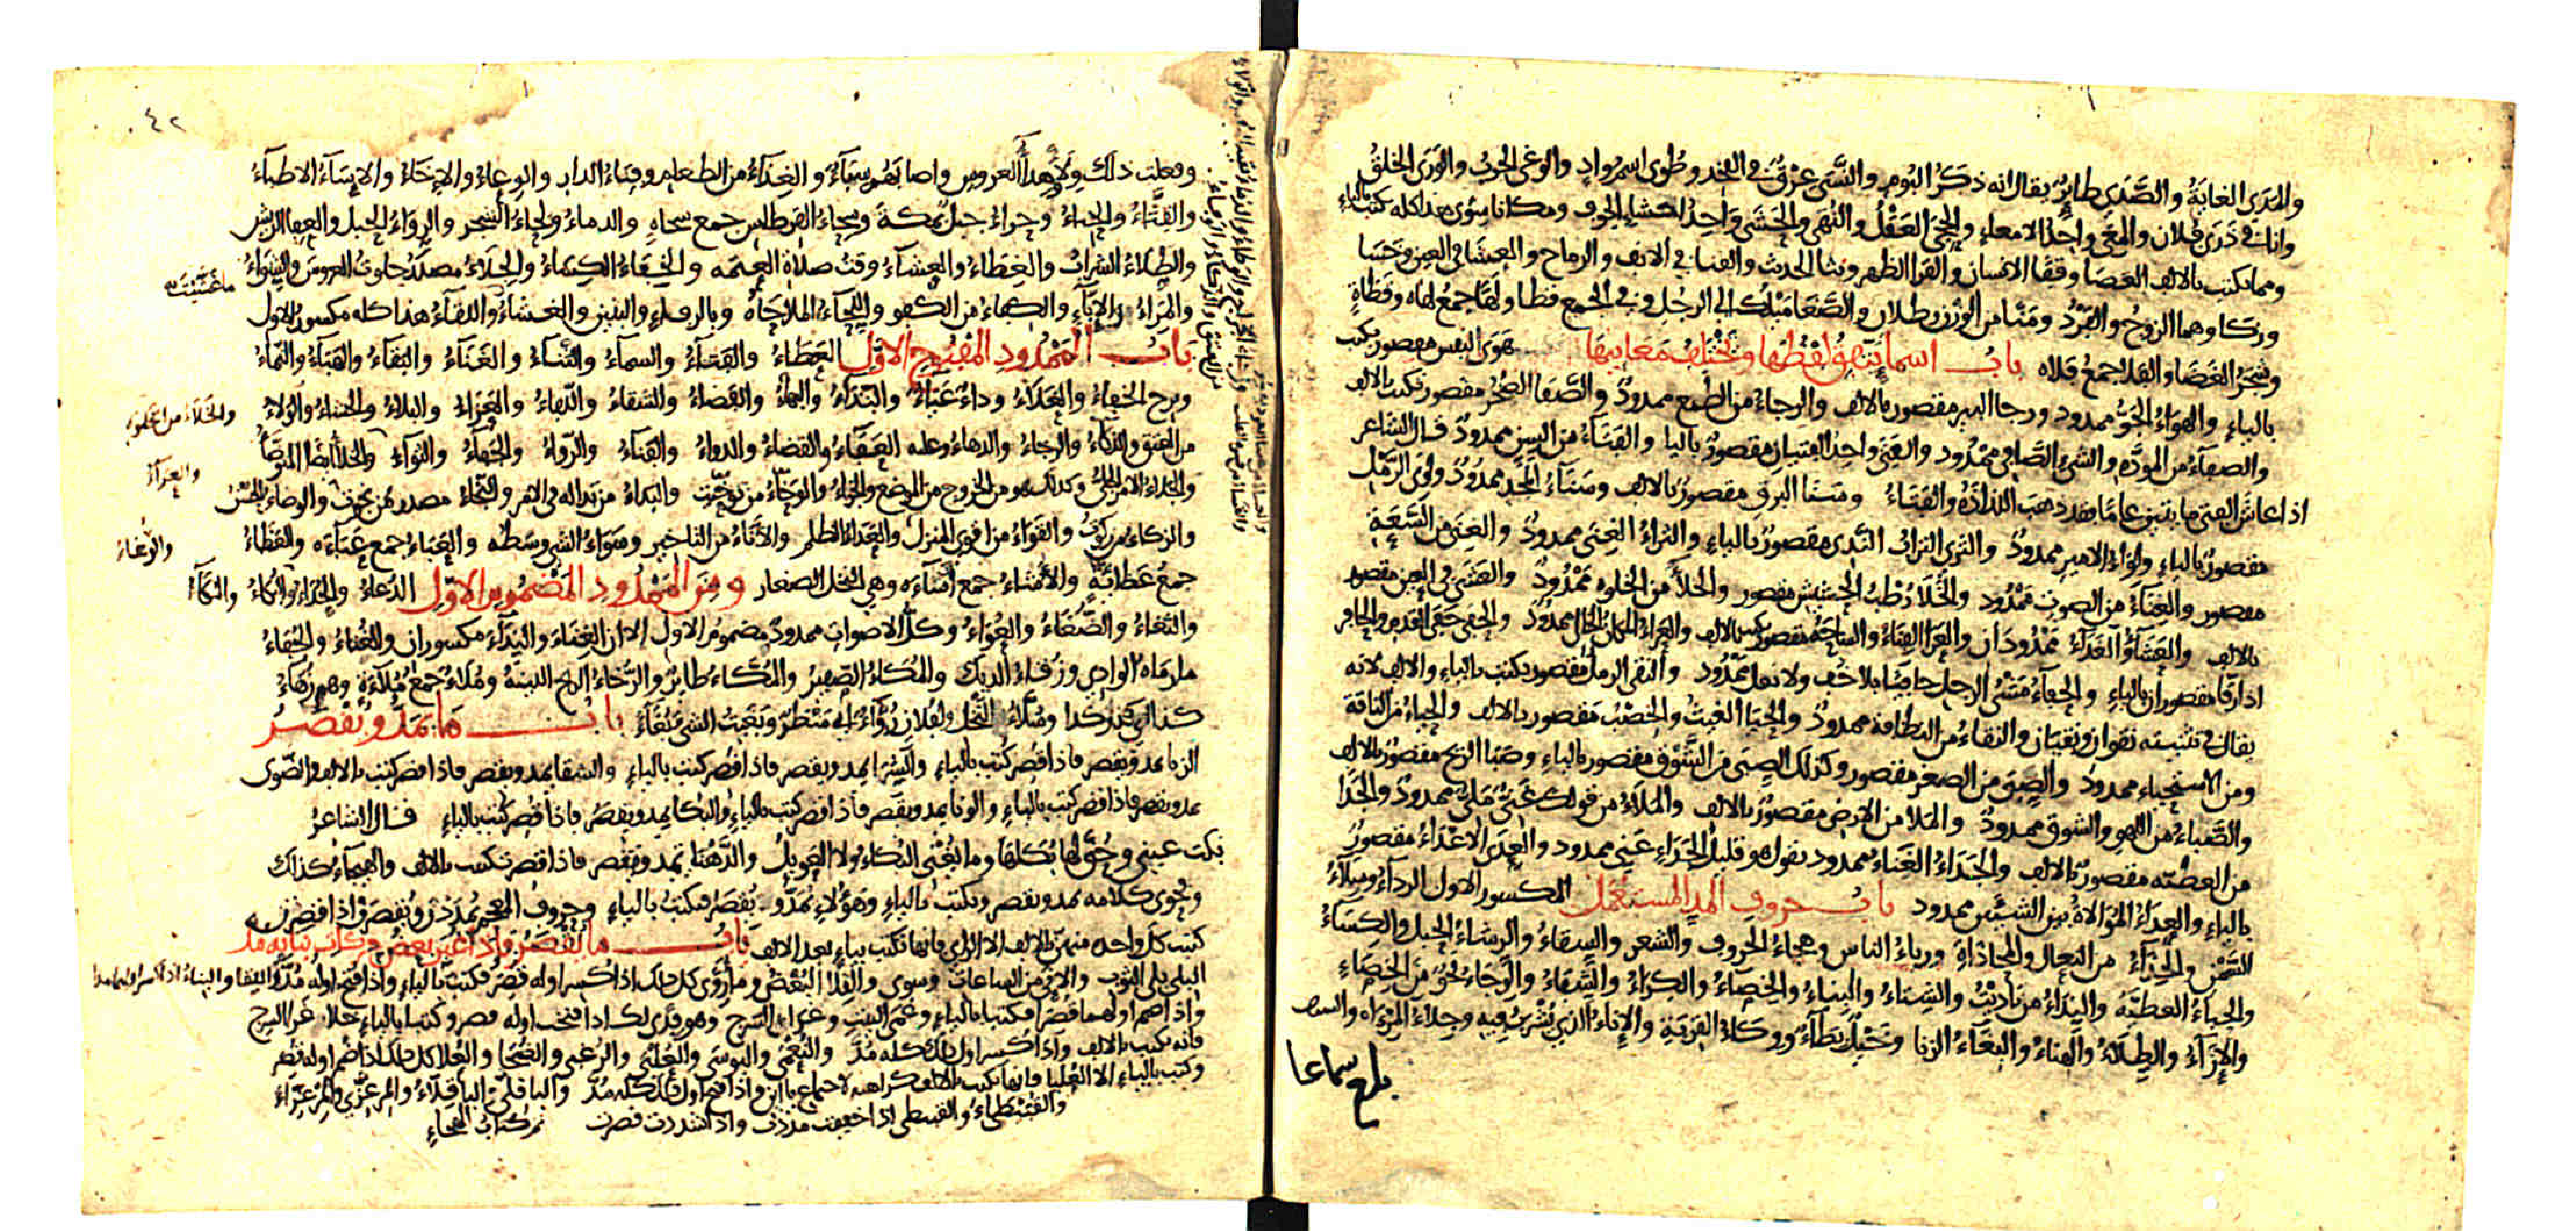 والمدى الغاية والصدى طاير يقال انه ذكر البوم والنسى عرق في الفخذ وطوى اسم واد والوغى الحرب والورى الخلق
وانا في ذرى فلان والمعى واحد الامعاء والحجى العقل والنهى والحشى واحد احشاء الجوف ومكانا سوى هذا كله يكتب بالياء
ومما يكتب بالالف العصا وقفا الانسان والقرا الظهر ونثا الحديث والقنا في الانف والرماح والعشا في العين وخسا
وزكا وهما الزوج والفرد ومنا من الوزن رطلان والصغا ميلك الى الرجل وفي الجمع قطا ولها جمع لهاه وقطاة
وشجر الغضا والفلا جمع فلاه باب اسماء يتفق لفظها وتختلف معانيها هوى النفس مقصور يكتب
بالياء والهواء الجو ممدود ورجا البير مقصور بالالف والرجاء من الطمع ممدود والصفا الصخر مقصور يكتب بالالف
والصفاء من المودة والشئ الصافي ممدود والفتى واحد الفتيان مقصور باليا والفتاء من السن ممدود قال الشاعر
اذا عاش الفتى مايتين عاما فقد ذهب اللذاذة والفتاء وسنا البرق مقصور بالالف وسناء المجد ممدود ولوى الرمل
مقصور بالياء ولواء الامير ممدود والثرى التراب الندى مقصور بالياء والثراء الغنى ممدود والغنى من السعة
مقصور والغناء من الصوت ممدود والخلا رطب الحشيش مقصور والخلاء من الخلوة ممدود والعشى في العين مقصور
بالالف والعشاء الغداء ممدودان والعرا الفناء والساحة مقصور يكتب بالالف والعراء المكان الخالى ممدود والحفى حفى القدم والحافر
اذا رقا مقصوران بالياء والحفاء مشى الرجل حافيا بلا خف ولا نعل ممدود والنقى الرمل مقصور يكتب بالياء والالف لانه
يقال في تثنيته نقوان ونقيان والنقاء من النظافة ممدود والحيا الغيث والخصب مقصور بالالف والحياء من الناقة
ومن الاستحياء ممدود والصبى من الصغر مقصور وكذلك الصبى من الشوق مقصور بالياء وصبا الريح مقصور بالالف
والصباء من اللهو والشوق ممدود والملا من الارض مقصور بالالف والملاء من قولك غنى ملئ ممدود والجدا
من العطية مقصور بالالف والجداء الغناء ممدود تقول هو قليل الجداء عنى ممدود والعدى الاعداء مقصور
بالياء والعداء الموالاة بين الشيئين ممدود باب حروف المد المستعمل المكسور الاول الرداء وسلاء
السمن والحذاء من النعال والمحاذاة ورياء الناس وهجاء الحروف والشعر والسقاء والرشاء الحبل والكساء
والحباء العطية والنداء من ناديت والشتاء والبناء والخصاء والكراء والشفاء والوجاء نحو من الخصاء
والازاء والطلاء والهناء والبغاء الزنا وخيل بطاء ووكاء القربة والاناء الذى يشرب فيه وجلاء المرآه والسيف
بلغ سماعا
٤٢
وفعلت ذلك ولاء وهداء العروس واصابهم سباء والغذاء من الطعام وفناء الدار والوعاء والاخاء والاساء الاطباء
والقثاء والحناء وحراء جبل بمكة وسحاء القرطاس جمع سحاه والدماء ولحاء الشجر والرواء الحبل والعفا الريش
والطلاء الشراب والغطاء والعشاء وقت صلاة العتمه والخفاء الكساء والجلاء مصدر جلوت العروس والشواء
والمراء والاباء والكفاء من الكفو واللحاء الملاحاة وبالرفاء والبنين والغشاء واللقاء هذا كله مكسور الاول
باب الممدود المفتوح الاول العطاء والفناء والسماء والثناء والغناء والبقاء والهباء والنماء
وبرح الخفاء والغداء وداء عياء والبداء والبهاء والقضاء والشقاء والدهاء والعزاء والبلاء والحساء والولاء
من العتق والذكاء والرجاء والدهاء وعليه العفاء والقضاء والدواء والفناء والرواء والجفاء والثواء والخلا ايضا المتوضا
والجلاء الامر الجلى وكذلك هو من الخروج من الموضع والجزاء والوحاء من توحيت والبداء من بدا له في الامر والنجاء مصدر من نجوت والوضاء الحسن
والزكاء من زكوت والقواء من اقوى المنزل والعداء الظلم والاناء من التاخير وسواء الشئ وسطه والعباء جمع عباءه والعظاء
جمع عظاية والاشاء جمع اشاءه وهي النخل الصغار ومن الممدود المضموم الاول الدعاء والحداء والبكاء والمكاء
والثغاء والضغاء والعواء وكل الاصوات ممدود مضموم الاول الا ان الغناء والنداء مكسوران والغثاء والجفاء
ما رماه الوادى وزقاء الديك والمكاء الصفير والمكاء طاير والرخاء الريح اللينة وملاء جمع ملاءة وهم زهاء
كذا اى قدر كذا وسلاء النخل ولفلان رواء اى منظر وبغيت الشئ بغاء باب ما يمد ويقصر
الزنا يمد ويقصر فاذا قصر كتب بالياء والشرا يمد ويقصر فاذا قصر كتب بالياء والشقا يمد ويقصر فاذا قصر كتب بالالف والضوى
يمد ويقصر فاذا قصر كتب بالياء والونا يمد ويقصر فاذا قصر كتب بالياء والبكا يمد ويقصر فاذا قصر كتب بالياء قال الشاعر
بكت عينى وحق لها بكاها وما يغنى البكاء ولا العويل والدهنا تمد وتقصر فاذا قصرت كتبت بالالف والهيجاء كذلك
وفحوى كلامه يمد ويقصر ويكتب بالياء وهؤلاء يمد ويقصر فيكتب بالياء وحروف المعجم يمددن ويقصرن واذا قصرن
كتب كل واحده منهن بالالف الا الزاى فانها تكتب بياء بعد الالف باب ما يقصر فاذا غير بعض حركات بنايه مد
البلى بلى الثوب والانى من الساعات وسوى والقلا البغض وما روى كل ذلك اذا كسر اوله قصر فكتب بالياء واذا فتح اوله مد واللقا والبناء اذا كسر اولهما مدا
واذا ضم اولهما قصرا فكتبا بالياء وغمى البيت وغراء السرج وهو فدى لك اذا فتحت اوله قصر وكتبا بالياء خلا غرا السرج
فانه يكتب بالالف واذا كسر اول ذلك كله مد والنعمى والبوسى والعليى والرغبى والضحا والعلا كل ذلك اذا ضم اوله قصر
وكتب بالياء الا العليا فانها تكتب بالالف كراهية لاجتماع ياأين واذا فتح اول ذلك كله مد والباقلى والباقلاء والمرعزى والمرعزاء
والقبيطاء والقبيطى اذا خففت مددت واذا شددت قصرت تم كتاب الهجاء
والخلاء من الخلوة
والعراء
والرغاء